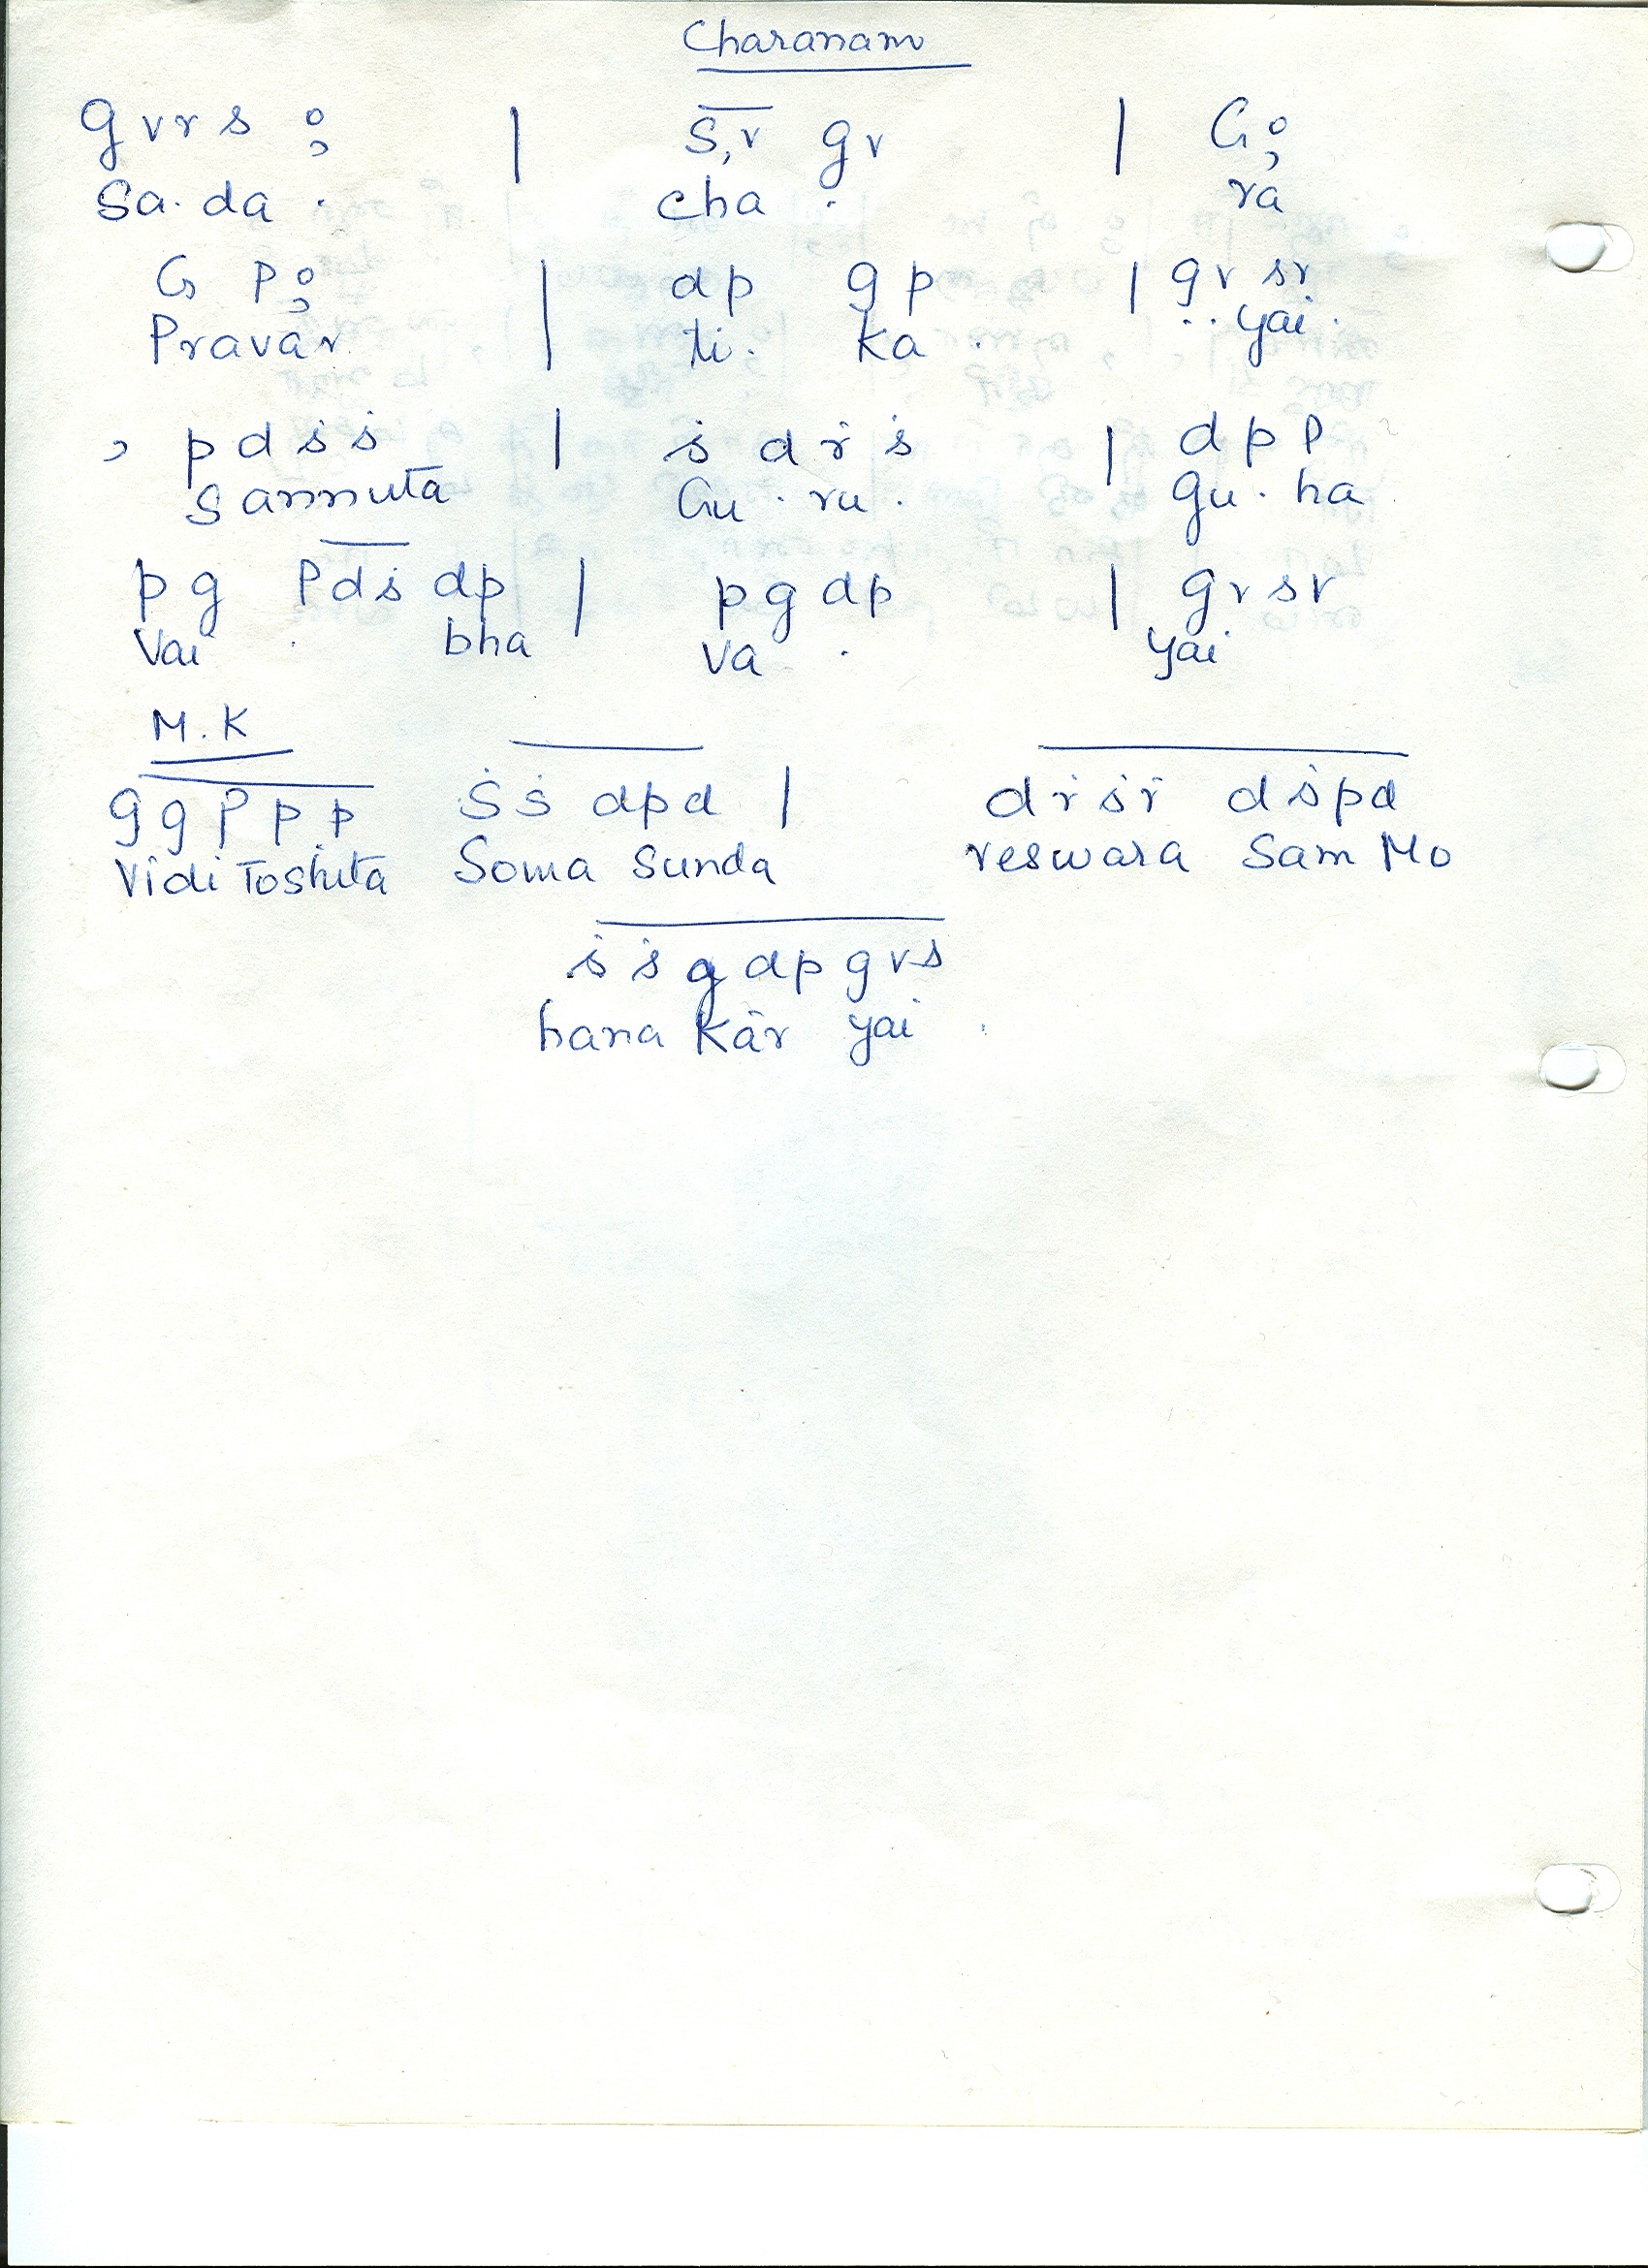 Charanam
g r r s ; | S, r g r | G ;
Sa . da . | cha . | ra
G P ; | d p g p | g r s r
Pravar | ti . ka . | . . yai .
, p d ṡ ṡ | ṡ d ṙ ṡ | d p P
Sannuta | Gu . ru . | gu . ha
p g P d ṡ d p | p g d p | g r s r
Vai . bha | va . | yai
M.K
g g P p p Ṡ ṡ d p d | d ṙ ṡ ṙ d ṡ p d
Vidi Toshita Soma Sunda reswara Sam Mo
ṡ ṡ g d p g r s
hana Kār yai .